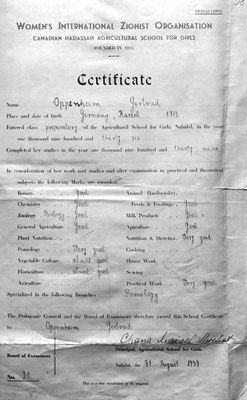 TRANSLATION.
WOMEN'S INTERNATIONAL ZIONIST ORGANISATION
CANADIAN HADASSAH AGRICULTURAL SCHOOL FOR GIRLS
FOUNDED IN 1923.
Certificate
Name Oppenheim Gertrud
Place and date of birth Germany, Kassel 1919
Entered class preparatory of the Agricultural School for Girls, Nahalal, in the year
one thousand nine hundred and thirty six
Completed her studies in the year one thousand nine hundred and thirty nine
In consideration of her work and studies and after examination in practical and theoretical
subjects the following Marks are awarded:
Botany Good Animal Husbandry.
Chemistry Good Feeds & Feedings Good
Zoology Biology Good Milk Products Good
General Agriculture Good Apiculture Good
Plant Nutrition Good Nutrition & Dietetics Very good
Pomology Very good Cooking
Vegetable Culture almost good House Work
Floriculture almost good Sewing
Aviculture Practical Work Very Good
Specialized in the following Branches Pomology
The Pedagogic Council and the Board of Examiners therefore award this School Certificate
to Oppenheim Gertrud
Principal, Agricultural School for Girls.
Board of Examiners
Nahalal, the 31 August 1939
No. 91
This is a true translation of the original.